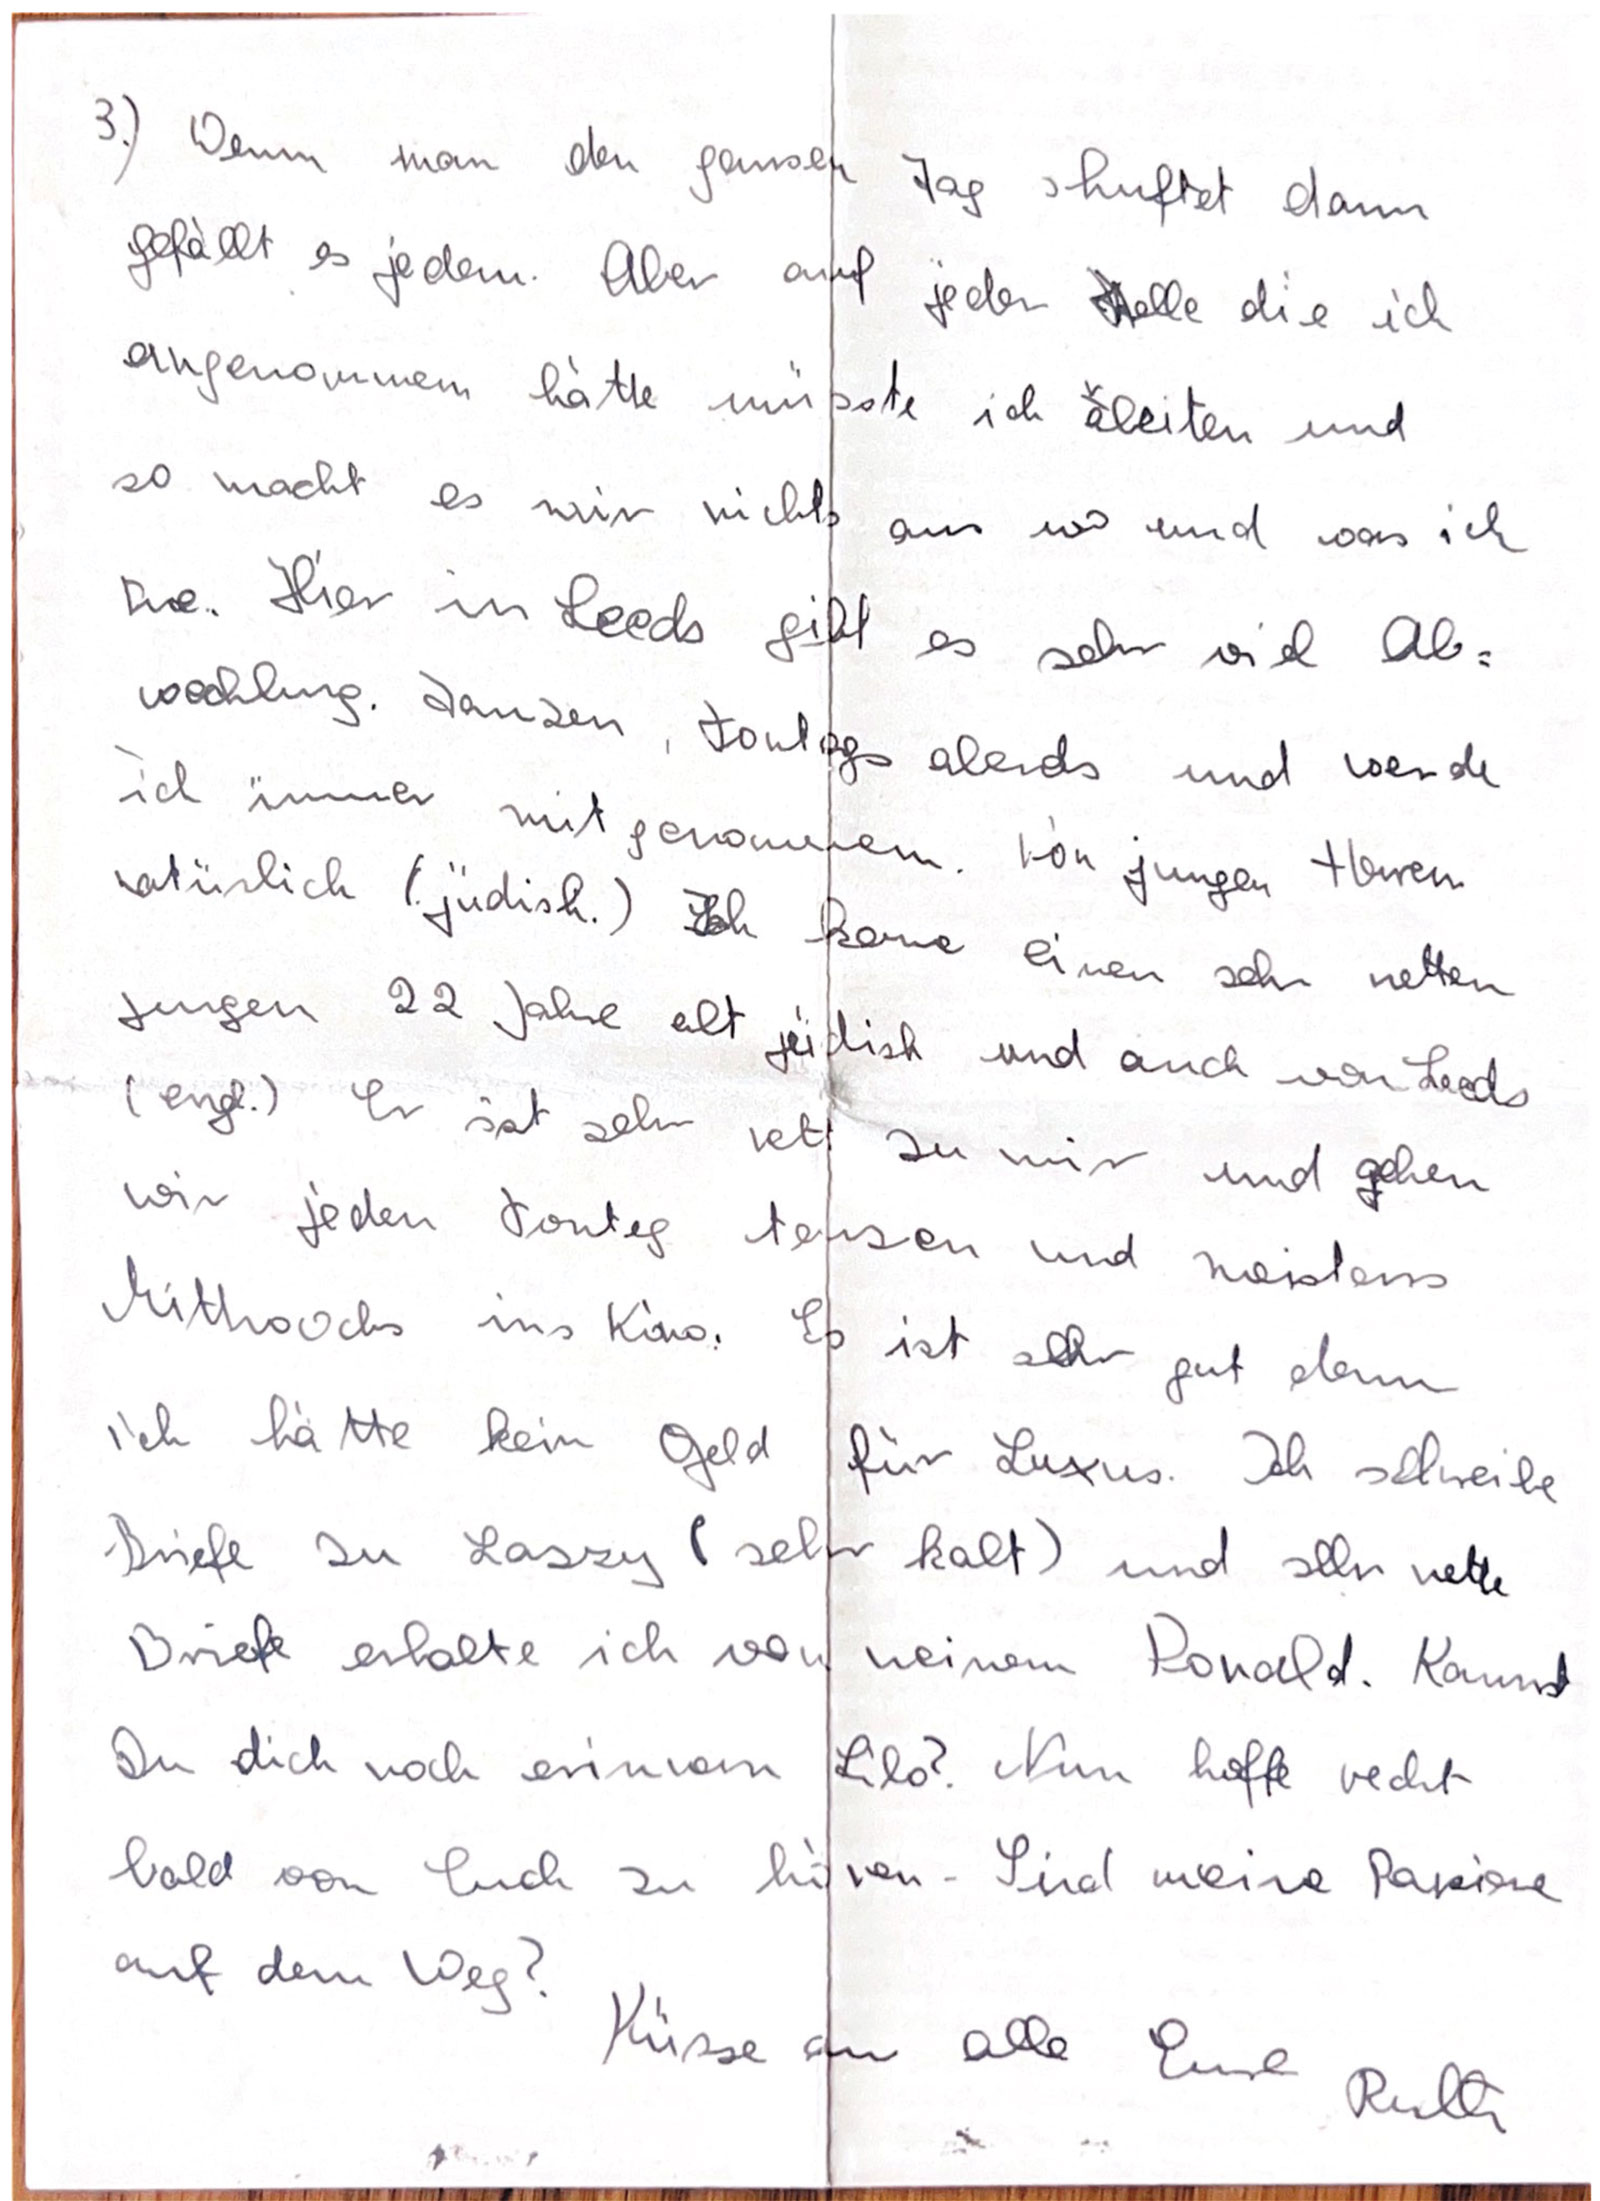 3.) Wenn man den ganzen Tag shuftet dann
gefällt es jedem. Aber auf jeder Stelle die ich
angenommem hätte müsste ich arbeiten und
so macht es mir nichts aus wo und was ich
tue. Hier in Leeds gibt es sehr viel Ab=
wechlung. Tanzen, Sontags abends und werde
ich immer mitgenommem. Von jungen Herren
natürlich (jüdish.) Ich kene einen sehr netten
jungen 22 Jahre alt jüdish und auch von Leeds
(engl.) Er ist sehr nett zu mir und gehen
wir jeden Sonteg tanzen und meistens
Mittwochs ins Kino. Es ist sehr gut denn
ich hätte kein Geld für Luxus. Ich schreibe
Briefe zu Laszy (sehr kalt) und sehr nette
Briefe erhalte ich von meinem Ronald. Kannst
Du dich noch erinnern Lilo? Nun hoffe recht
bald von Euch zu hören - Sind meine Papiere
auf dem Weg?
Küsse an alle Eure
Ruth